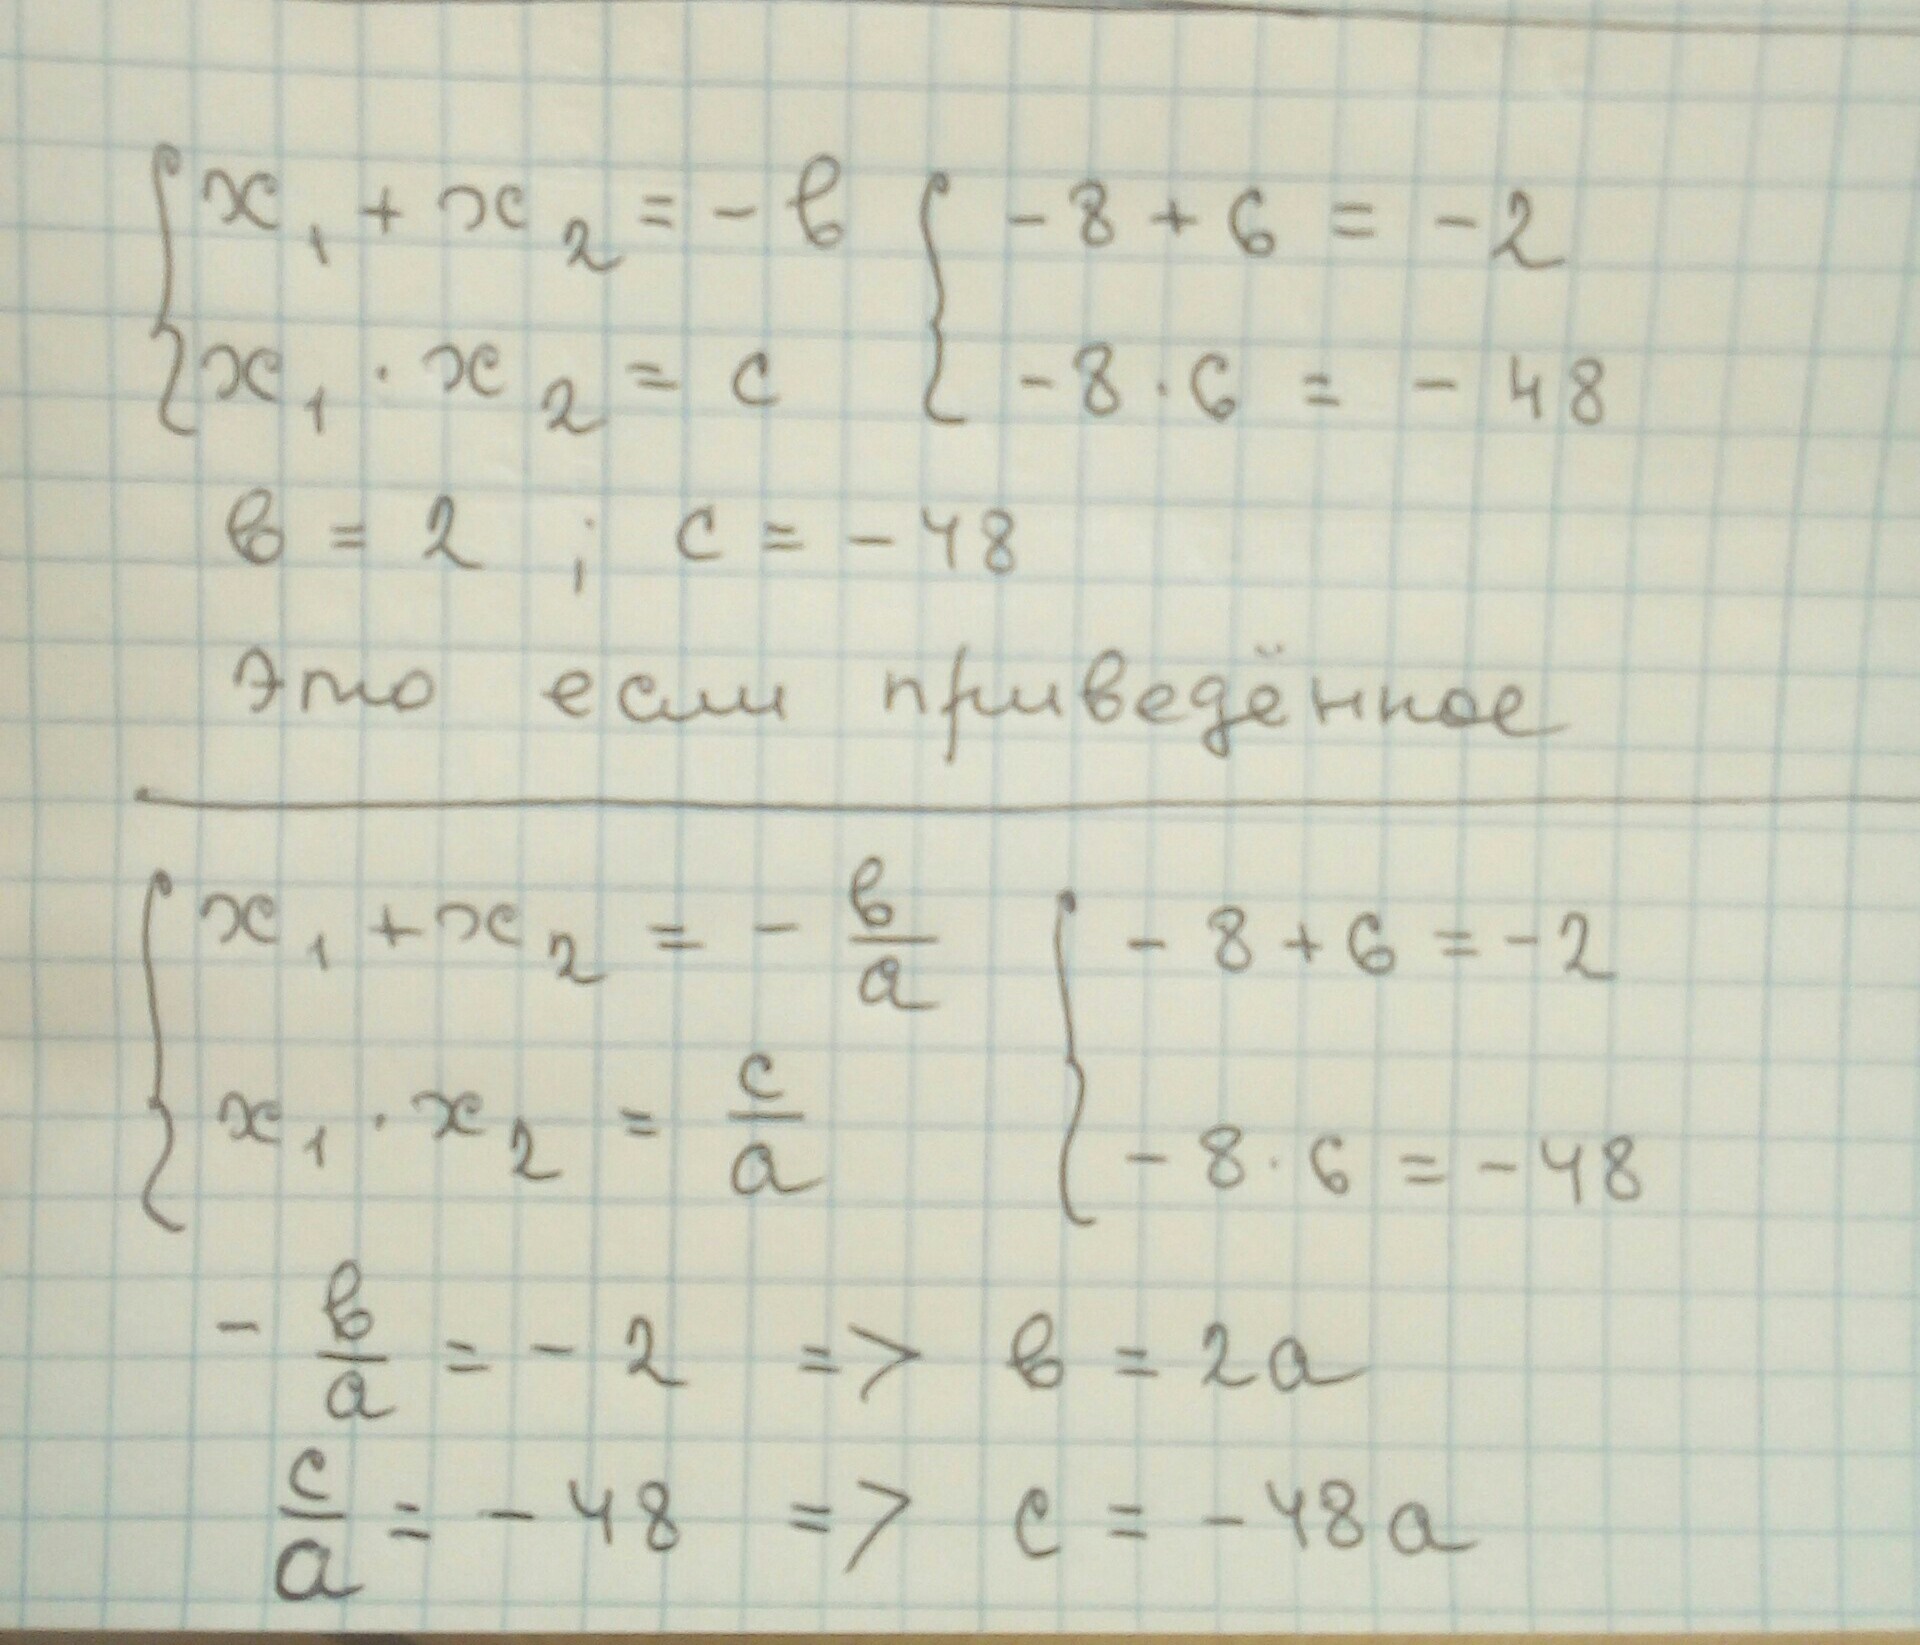 { x₁ + x₂ = - в { - 8 + 6 = - 2
{ x₁ · x₂ = c { - 8 · 6 = - 48
в = 2 ; c = - 48
Это если приведённое
{ x₁ + x₂ = - в/a { - 8 + 6 = - 2
{ x₁ · x₂ = c/a { - 8 · 6 = - 48
- в/a = - 2 => в = 2a
c/a = - 48 => c = - 48a